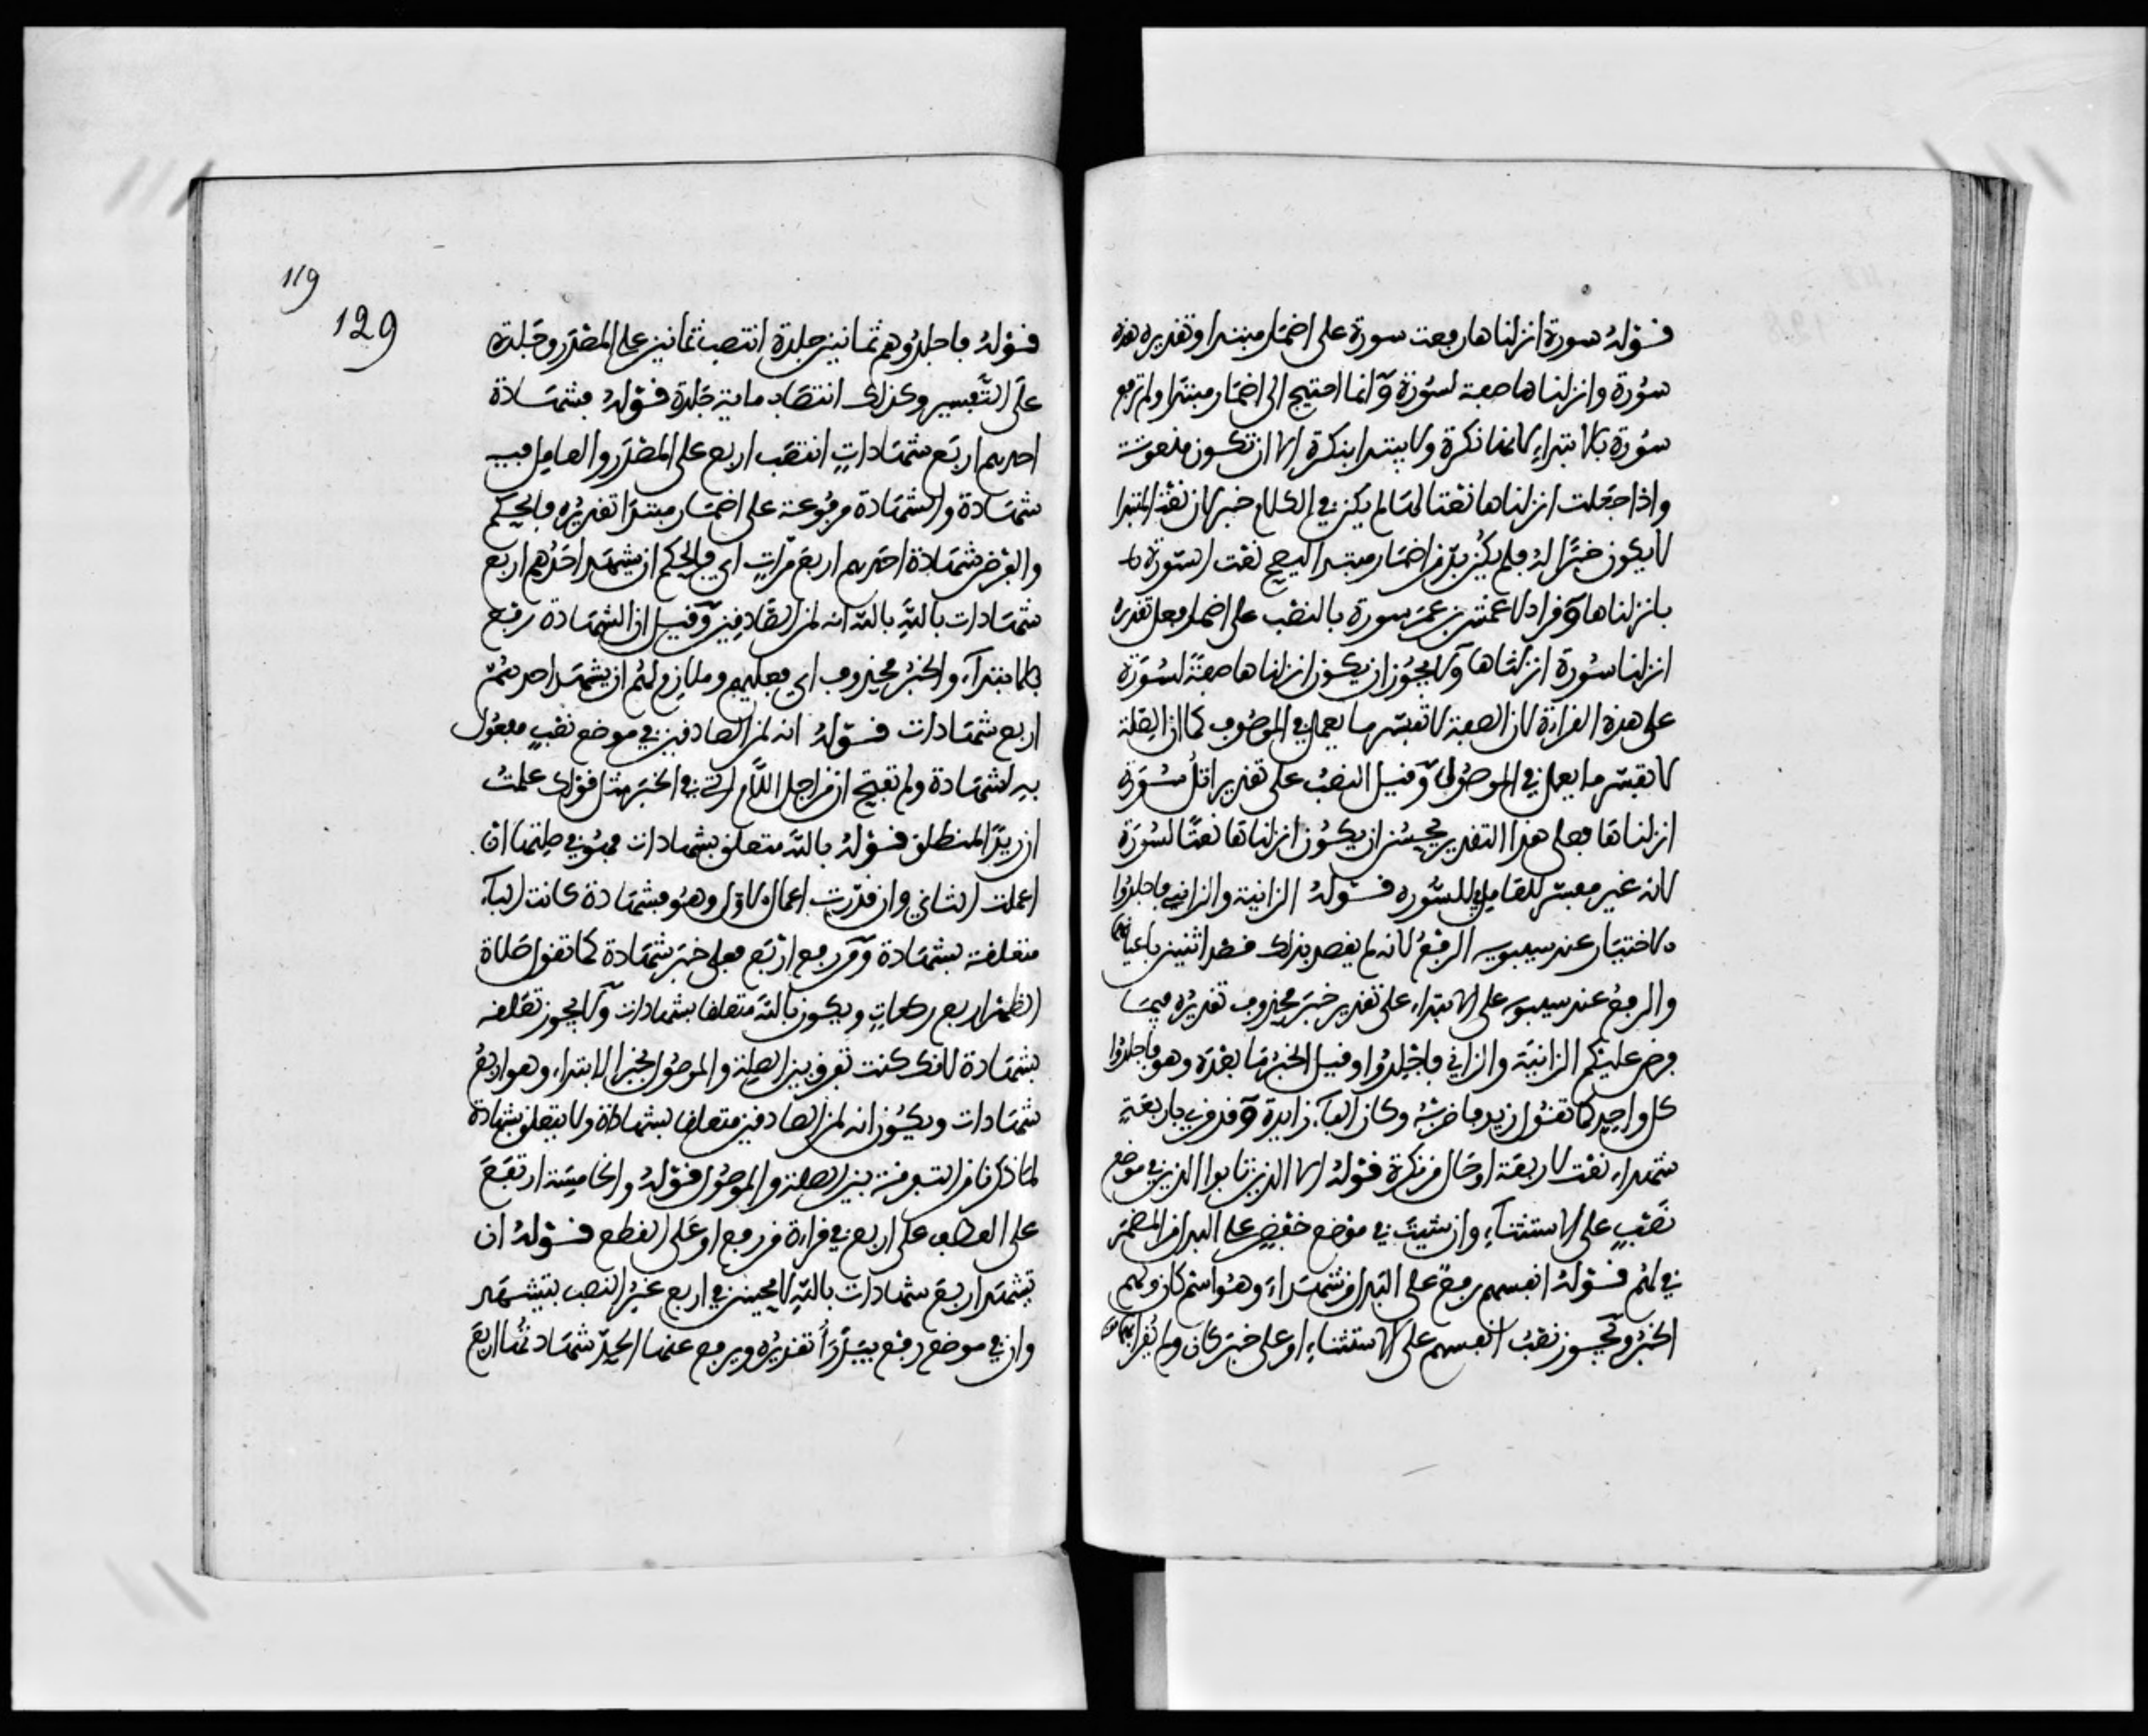 قوله سورة انزلناها رفعت سورة على اضمار مبتدا وتقديره هذه
سورة وانزلناها صفة لسورة وانما احتيج الى اضمار مبتدا ولم ترفع
سورة بالابتداء لانها نكرة ولا يبتدا بنكرة الا ان تكون منعوتة
واذا جعلت انزلناها نعتا لها لم يكن في الكلام خبر لان نعت المبتدا
لا يكون خبرا له فلم يكن بد من اضمار مبتدا ليصح نعت السورة
بانزلناها وقرا عيسى بن عمر سورة بالنصب على اضمار فعل تقديره
انزلنا سورة انزلناها ولا يجوز ان يكون انزلناها صفة لسورة
على هذه القراءة لان الصفة لا تفسر ما يعمل في الموصوف كما ان الصلة
لا تفسر ما يعمل في الموصول وقيل النصب على تقدير اتل سورة
انزلناها فعلى هذا التقدير يحسن ان يكون انزلناها نعتا لسورة
لانه غير مفسر للعامل في السورة قوله الزانية والزاني فاجلدوا
الاختيار عند سيبويه الرفع لانه لم يقصد بذلك قصد اثنين باعيانهما
والرفع عند سيبويه على الابتداء على تقدير خبر محذوف تقديره فيما
فرض عليكم الزانية والزاني فاجلدوا وقيل الخبر ما بعده وهو فاجلدوا
كل واحد كما تقول زيد فاضربه وكان الفاء زايدة وقد قرئ باربعة
شهداء نعت لاربعة او حال من نكرة قوله الا الذين تابوا الذين في موضع
نصب على الاستثناء وان شيت في موضع خفض على البدل من المضمر
في لهم قوله انفسهم رفع على البدل من شهداء وهو اسم كان ولهم
الخبر ويجوز نصب انفسهم على الاستثناء او على خبر كان ولم يقرا به
119
129
قوله فاجلدوهم ثمانين جلدة انتصب ثمانين على المصدر وجلدة
على التفسير وكذلك انتصاب ماية جلدة قوله فشهادة
احدهم اربع شهادات انتصب اربع على المصدر والعامل فيه
شهادة والشهادة مرفوعة على اضمار مبتدا تقديره فالحكم
والفرض شهادة احدهم اربع مرات اي فالحكم ان يشهد احدهم اربع
شهادات بالله بالله انه لمن الصادقين وقيل ان الشهادة رفع
بالابتداء والخبر محذوف اي فعليهم وملازم لهم ان يشهد احدهم
اربع شهادات قوله انه لمن الصادقين في موضع نصب مفعول
به لشهادة ولم تفتح ان من اجل اللام التي في الخبر مثل قولك علمت
ان زيدا لمنطلق قوله بالله متعلق بشهادات فهو في صلتها ان
اعملت الثاني وان قدرت اعمال الاول وهو فشهادة كانت الباء
متعلقة بشهادة ومن رفع اربع فعلى خبر شهادة كما تقول صلاة
الظهر اربع ركعات ويكون بالله متعلقا بشهادات ولا يجوز تعلقه
بشهادة لانك كنت تفرق بين الصلة والموصول بخبر الابتداء وهو اربع
شهادات ويكون انه لمن الصادقين متعلقا بشهادة ولا يتعلق بشهادة
لما ذكرنا من التفرقة بين الصلة والموصول قوله والخامسة ارتفع
على العطف على اربع في قراءة من رفع او على القطع قوله ان
تشهد اربع شهادات بالله لا يحسن في اربع غير النصب بتشهد
وان في موضع رفع بيدرأ تقديره ويرفع عنها الحد شهادتها اربع